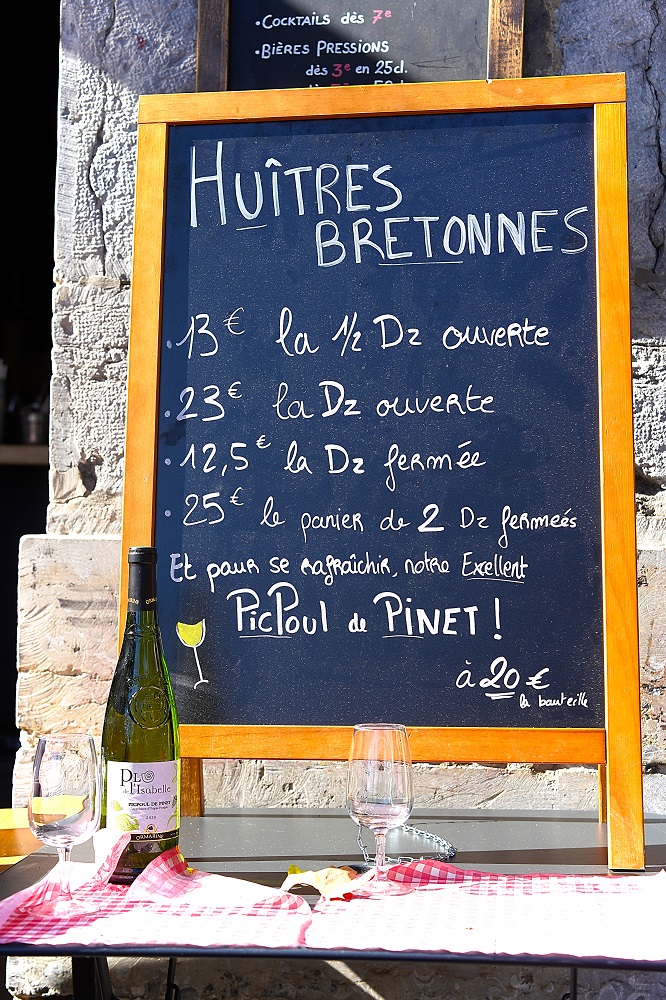 •Cocktails dès 7e
•Bières Pressions
dès 3e en 25cl.
Huîtres
Bretonnes
•13€ la 1/2 Dz ouverte
•23€ la Dz ouverte
•12,5€ la Dz fermée
•25€ le panier de 2 Dz fermeés
Et pour se rafraîchir, notre Excellent
PicPoul de Pinet !
à 20 €
la bouteille
ORMARINE
PLO
de l'Isabelle
PICPOUL DE PINET
2020
ORMARINE